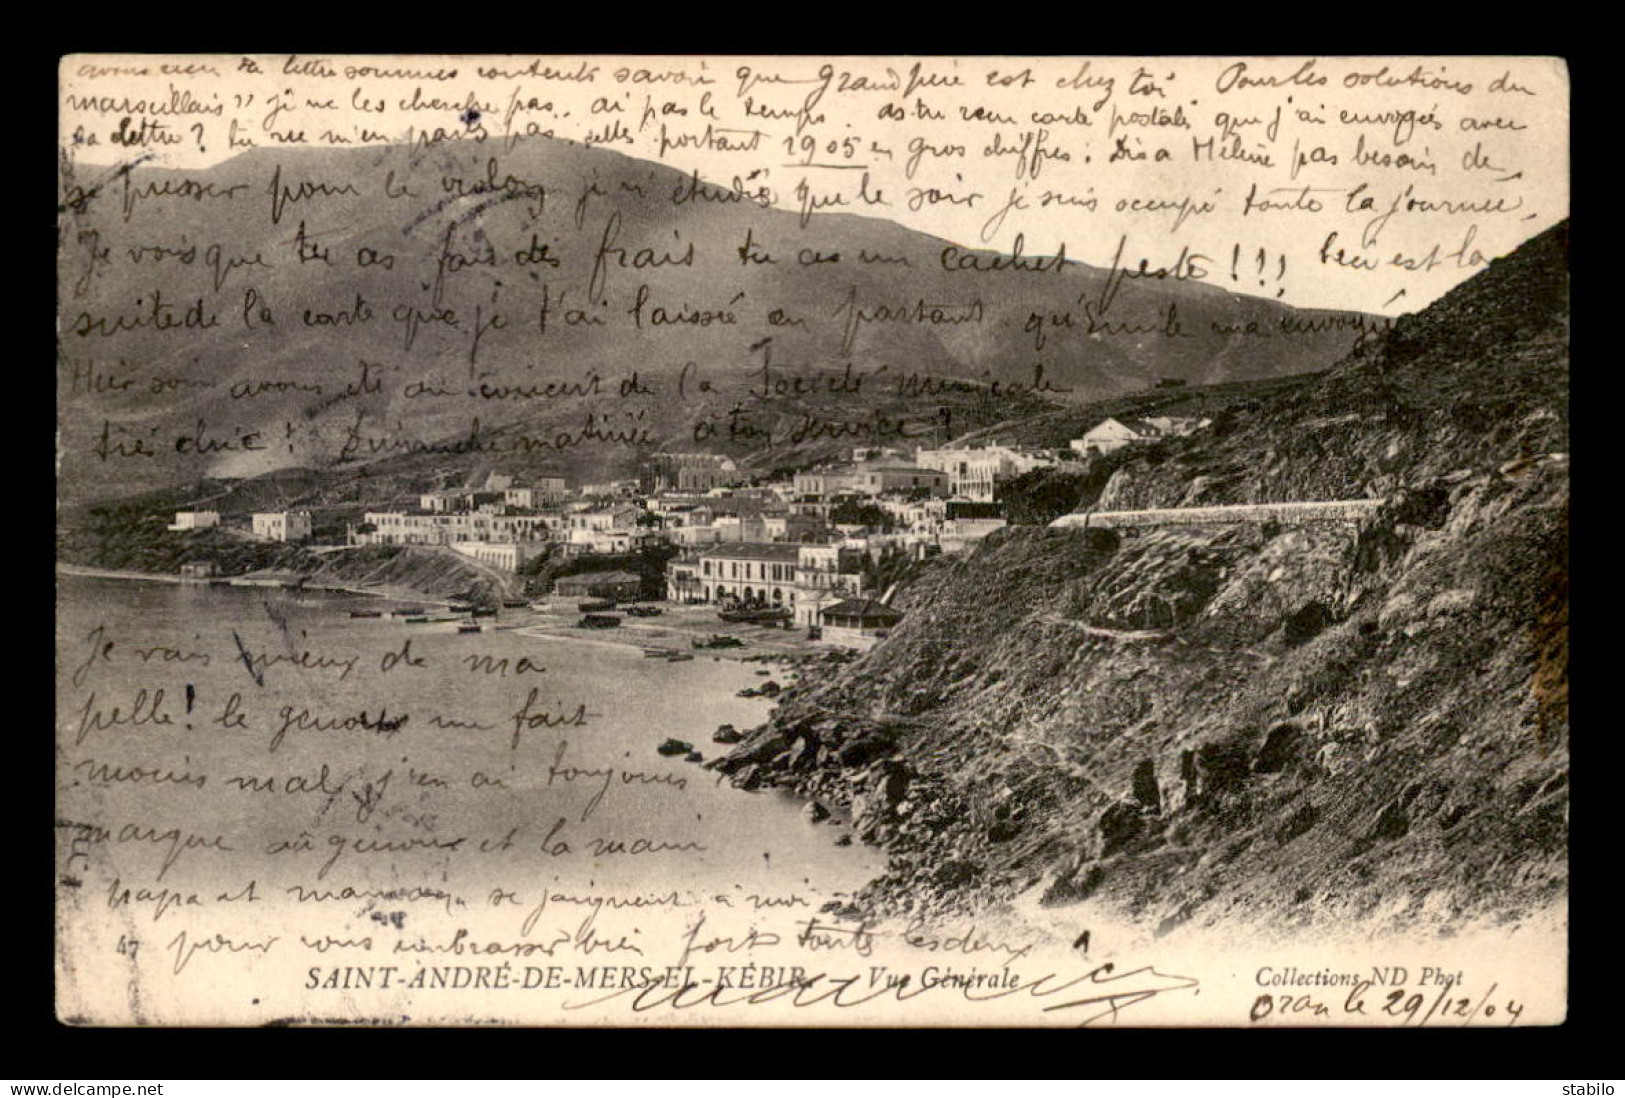 avons reçu ta lettre sommes contents savoir que Grand père est chez toi Pour les solutions du
marseillais" je ne les cherche pas. ai pas le temps. as-tu reçu carte postale que j'ai envoyées avec
la lettre? tu ne m'en parles pas. celles portant 1905 en gros chiffres. Dis a Hélène pas besoin de
se presser pour le violon je n'étudie que le soir je suis occupé toute la journée.
Je vois que tu as fais des frais tu as un cachet peste!!! Ceci est la
suite de la carte que je t'ai laissé en partant qu'Emile m'a envoyée
Hier soir avons été au concert de la Société Musicale
très chic! Dimanche matinée à ton service?
Je vais mieux de ma
pelle! le genou me fait
moins mal, j'en ai toujours
marque au genoux et la main
papa et maman se joignent à moi
pour vous embrasser bien fort toute les deux
47
SAINT-ANDRÉ-DE-MERS-EL-KÉBIR. — Vue Générale
Collections ND Phot
Oran le 29/12/04
stabilo